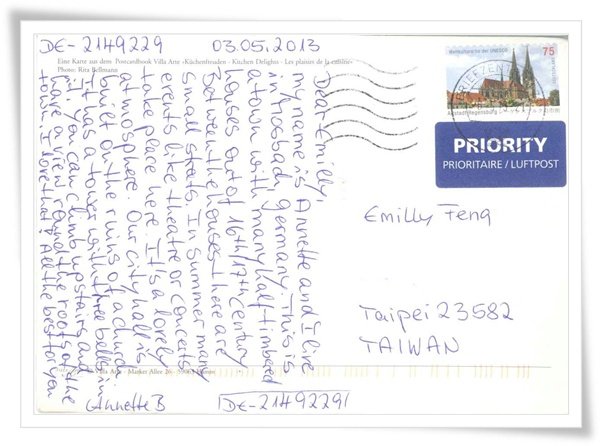 DE-2149229 03.05.2013
Eine Karte aus dem Postcardbook Villa Arte «Küchenfreuden - Kitchen Delights - Les plaisirs de la cuisine»
Photo: Rita Bellmann
Dear Emilly,
my name is Annette and I live
in Mosbach, Germany. This is
a town with many half timbered
houses out of 16th/17th century
Between the houses there are
small strats. In summer many
erents like theatre or concerts
take place here. It's a lovely
atmosphere. Our city hall is
built on the ruins of a church
It has a tower with three bells in
it. You can climb upstairs and
have a view round the roofs of the
town. I love that! All the best for you
Annette B
DE-2149229
Villa Arte - Marker Allee
Weltkulturerbe der UNESCO
75
Altstadt Regensburg
BRIEFZENT
PRIORITY
PRIORITAIRE / LUFTPOST
Emilly Feng
Taipei 23582
TAIWAN